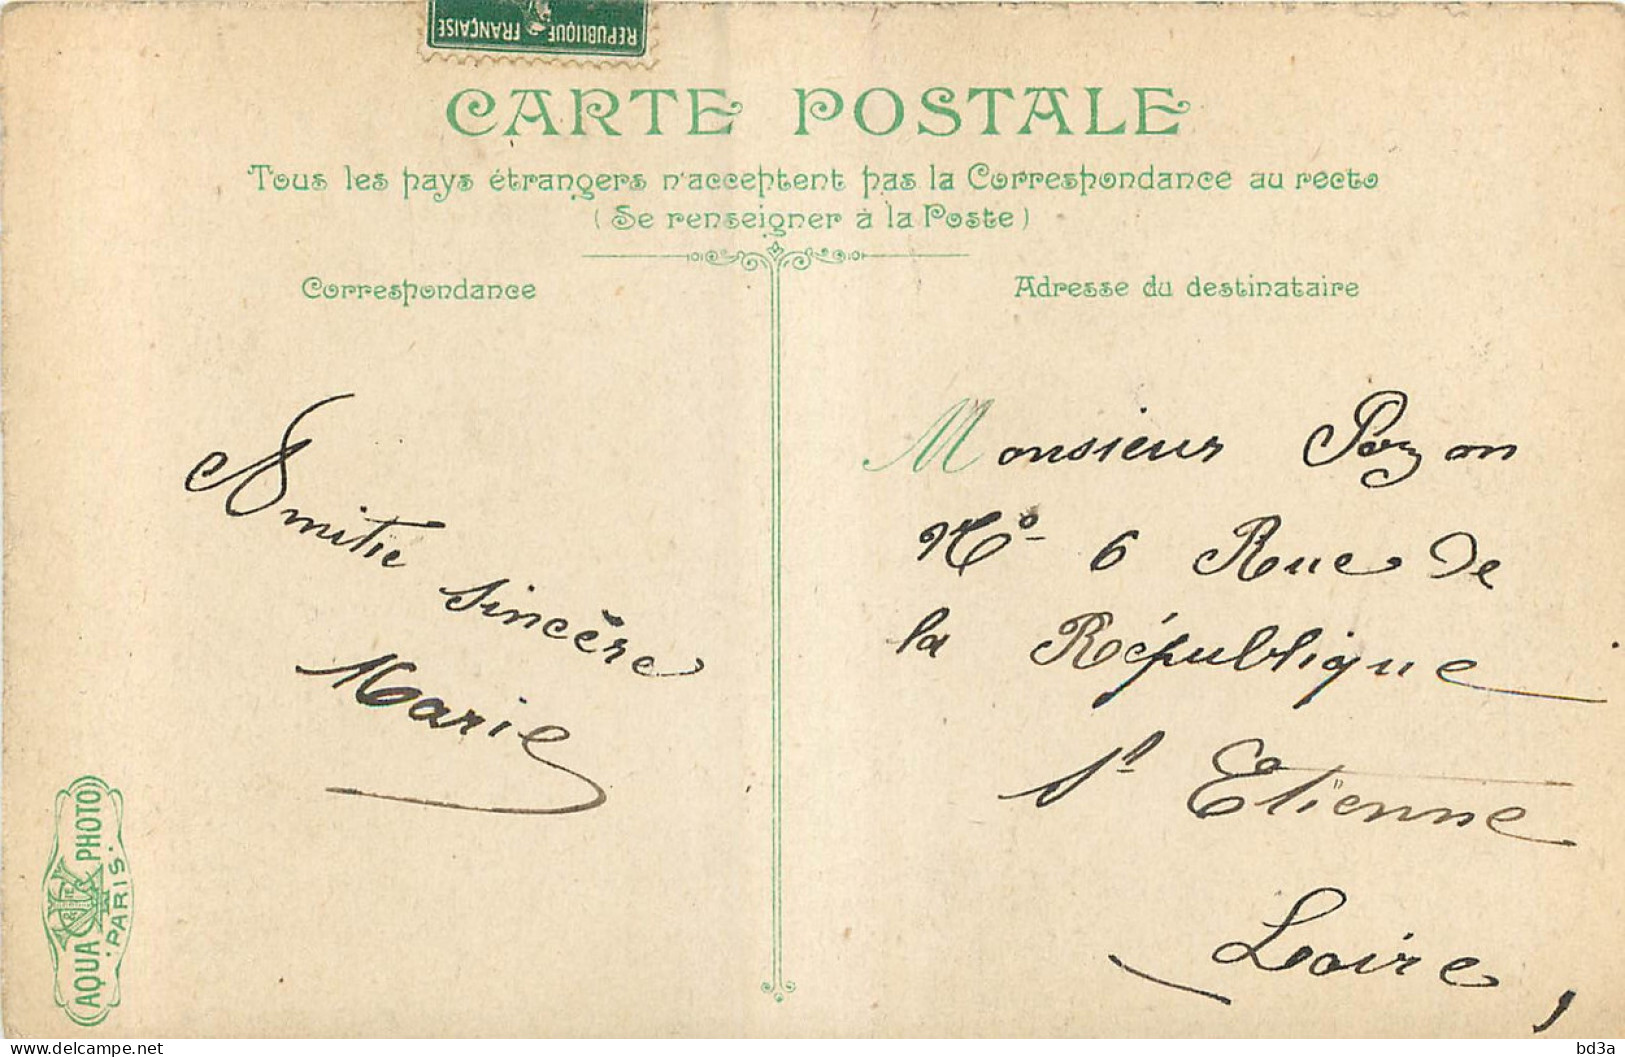 REPUBLIQUE FRANÇAISE
CARTE POSTALE
Tous les pays étrangers n'acceptent pas la Correspondance au recto
(Se renseigner à la Poste)
Correspondance
Amitié sincère
Marie
Adresse du destinataire
Monsieur
No 6 Rue de
la République
St Etienne
Loire,
AQUA PHOTO
PARIS.
bd3a